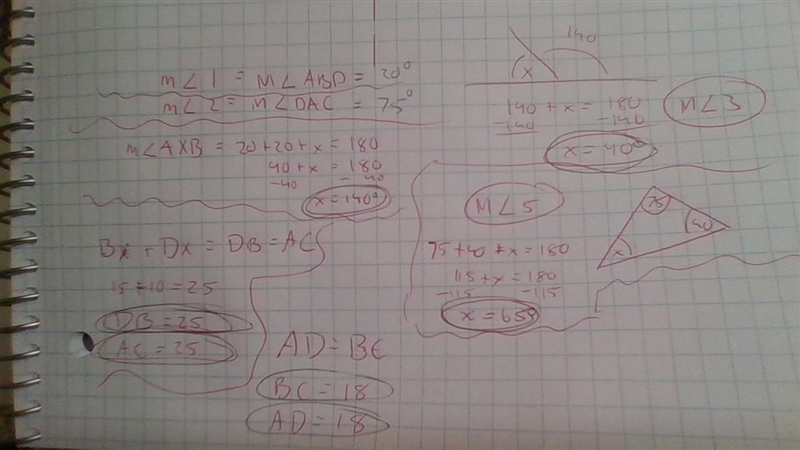 m∠1 = m∠ABD = 20°
m∠2 = m∠DAC = 75°
m∠AXB = 20+20+x = 180
40+x = 180
-40 -40
x=140°
Bx + Dx = DB = AC
15+10=25
DB=25
AC=25
AD=BC
BC=18
AD=18
140
x
140 + x = 180
-140 -140
x=40°
M∠3
M∠5
75+40+x=180
115+x=180
-115 -115
x=65°
75
40
x